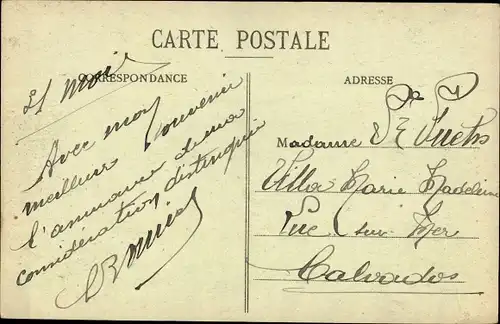 CARTE POSTALE
CORRESPONDANCE
21 Mai
Avec mon
meilleur Souvenir
l'assurance de ma
considération distinguée
ADRESSE
Madame
Villa Marie Madeleine
Luc sur Mer
Calvados